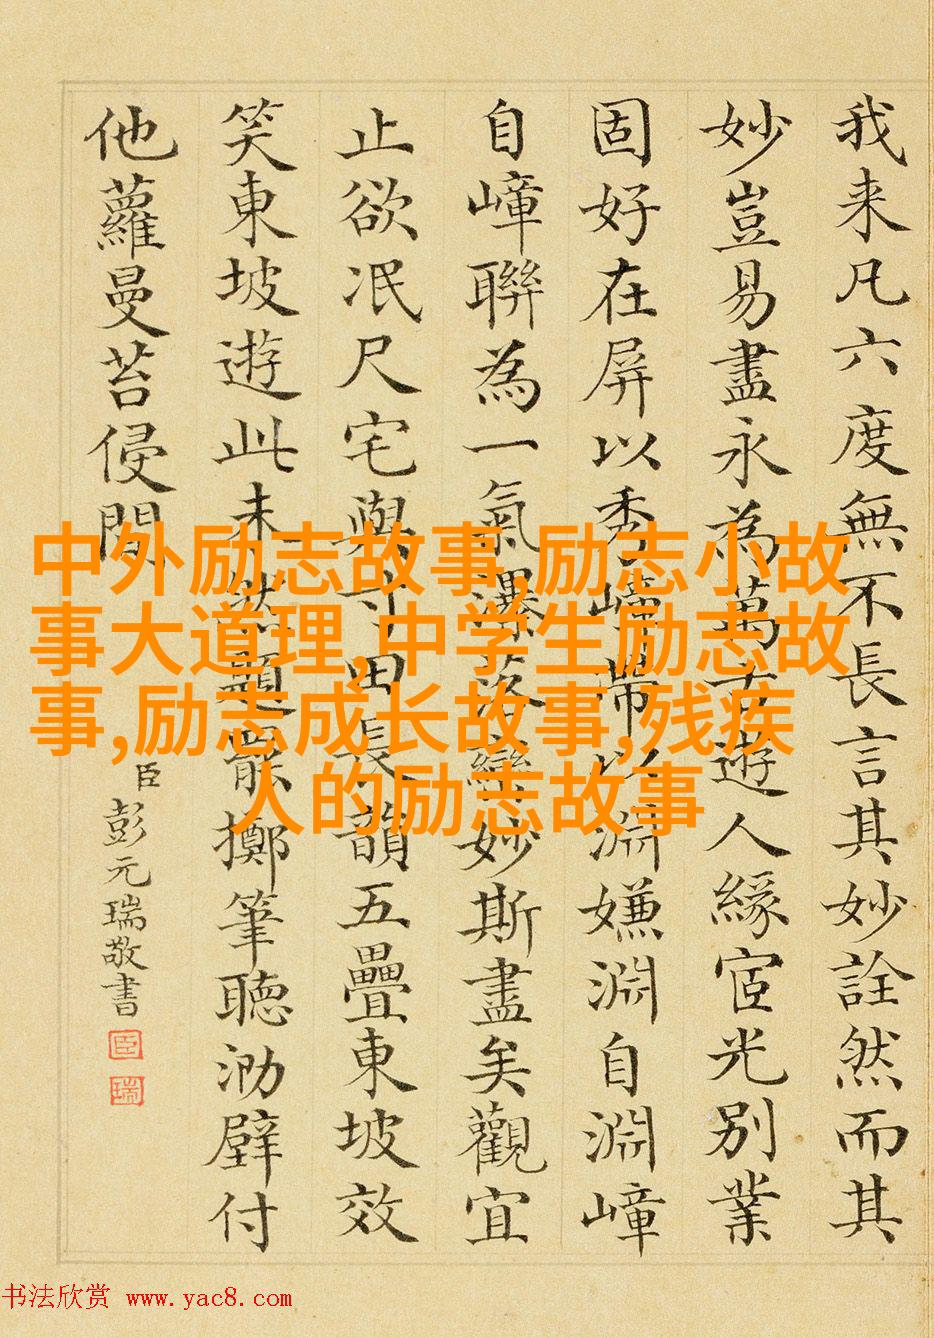 我来凡六度無不長言其妙詮然而其
妙豈易盡永為萬古遊人緣宧光別業
固好在屏以秀嶂帶以淵嫌淵自淵嶂
自嶂聯為一氣瀑落妙斯盡矣觀宜
止欲泯尺宅與寸田長韻五疊東坡效
笑東坡遊此未題罷擲筆聽泐壁付
他蘿曼苔侵
臣彭元瑞敬書
臣
瑞
中外励志故事,励志小故
事大道理,中学生励志故
事,励志成长故事,残疾
人的励志故事
书法欣赏 www.yac8.com